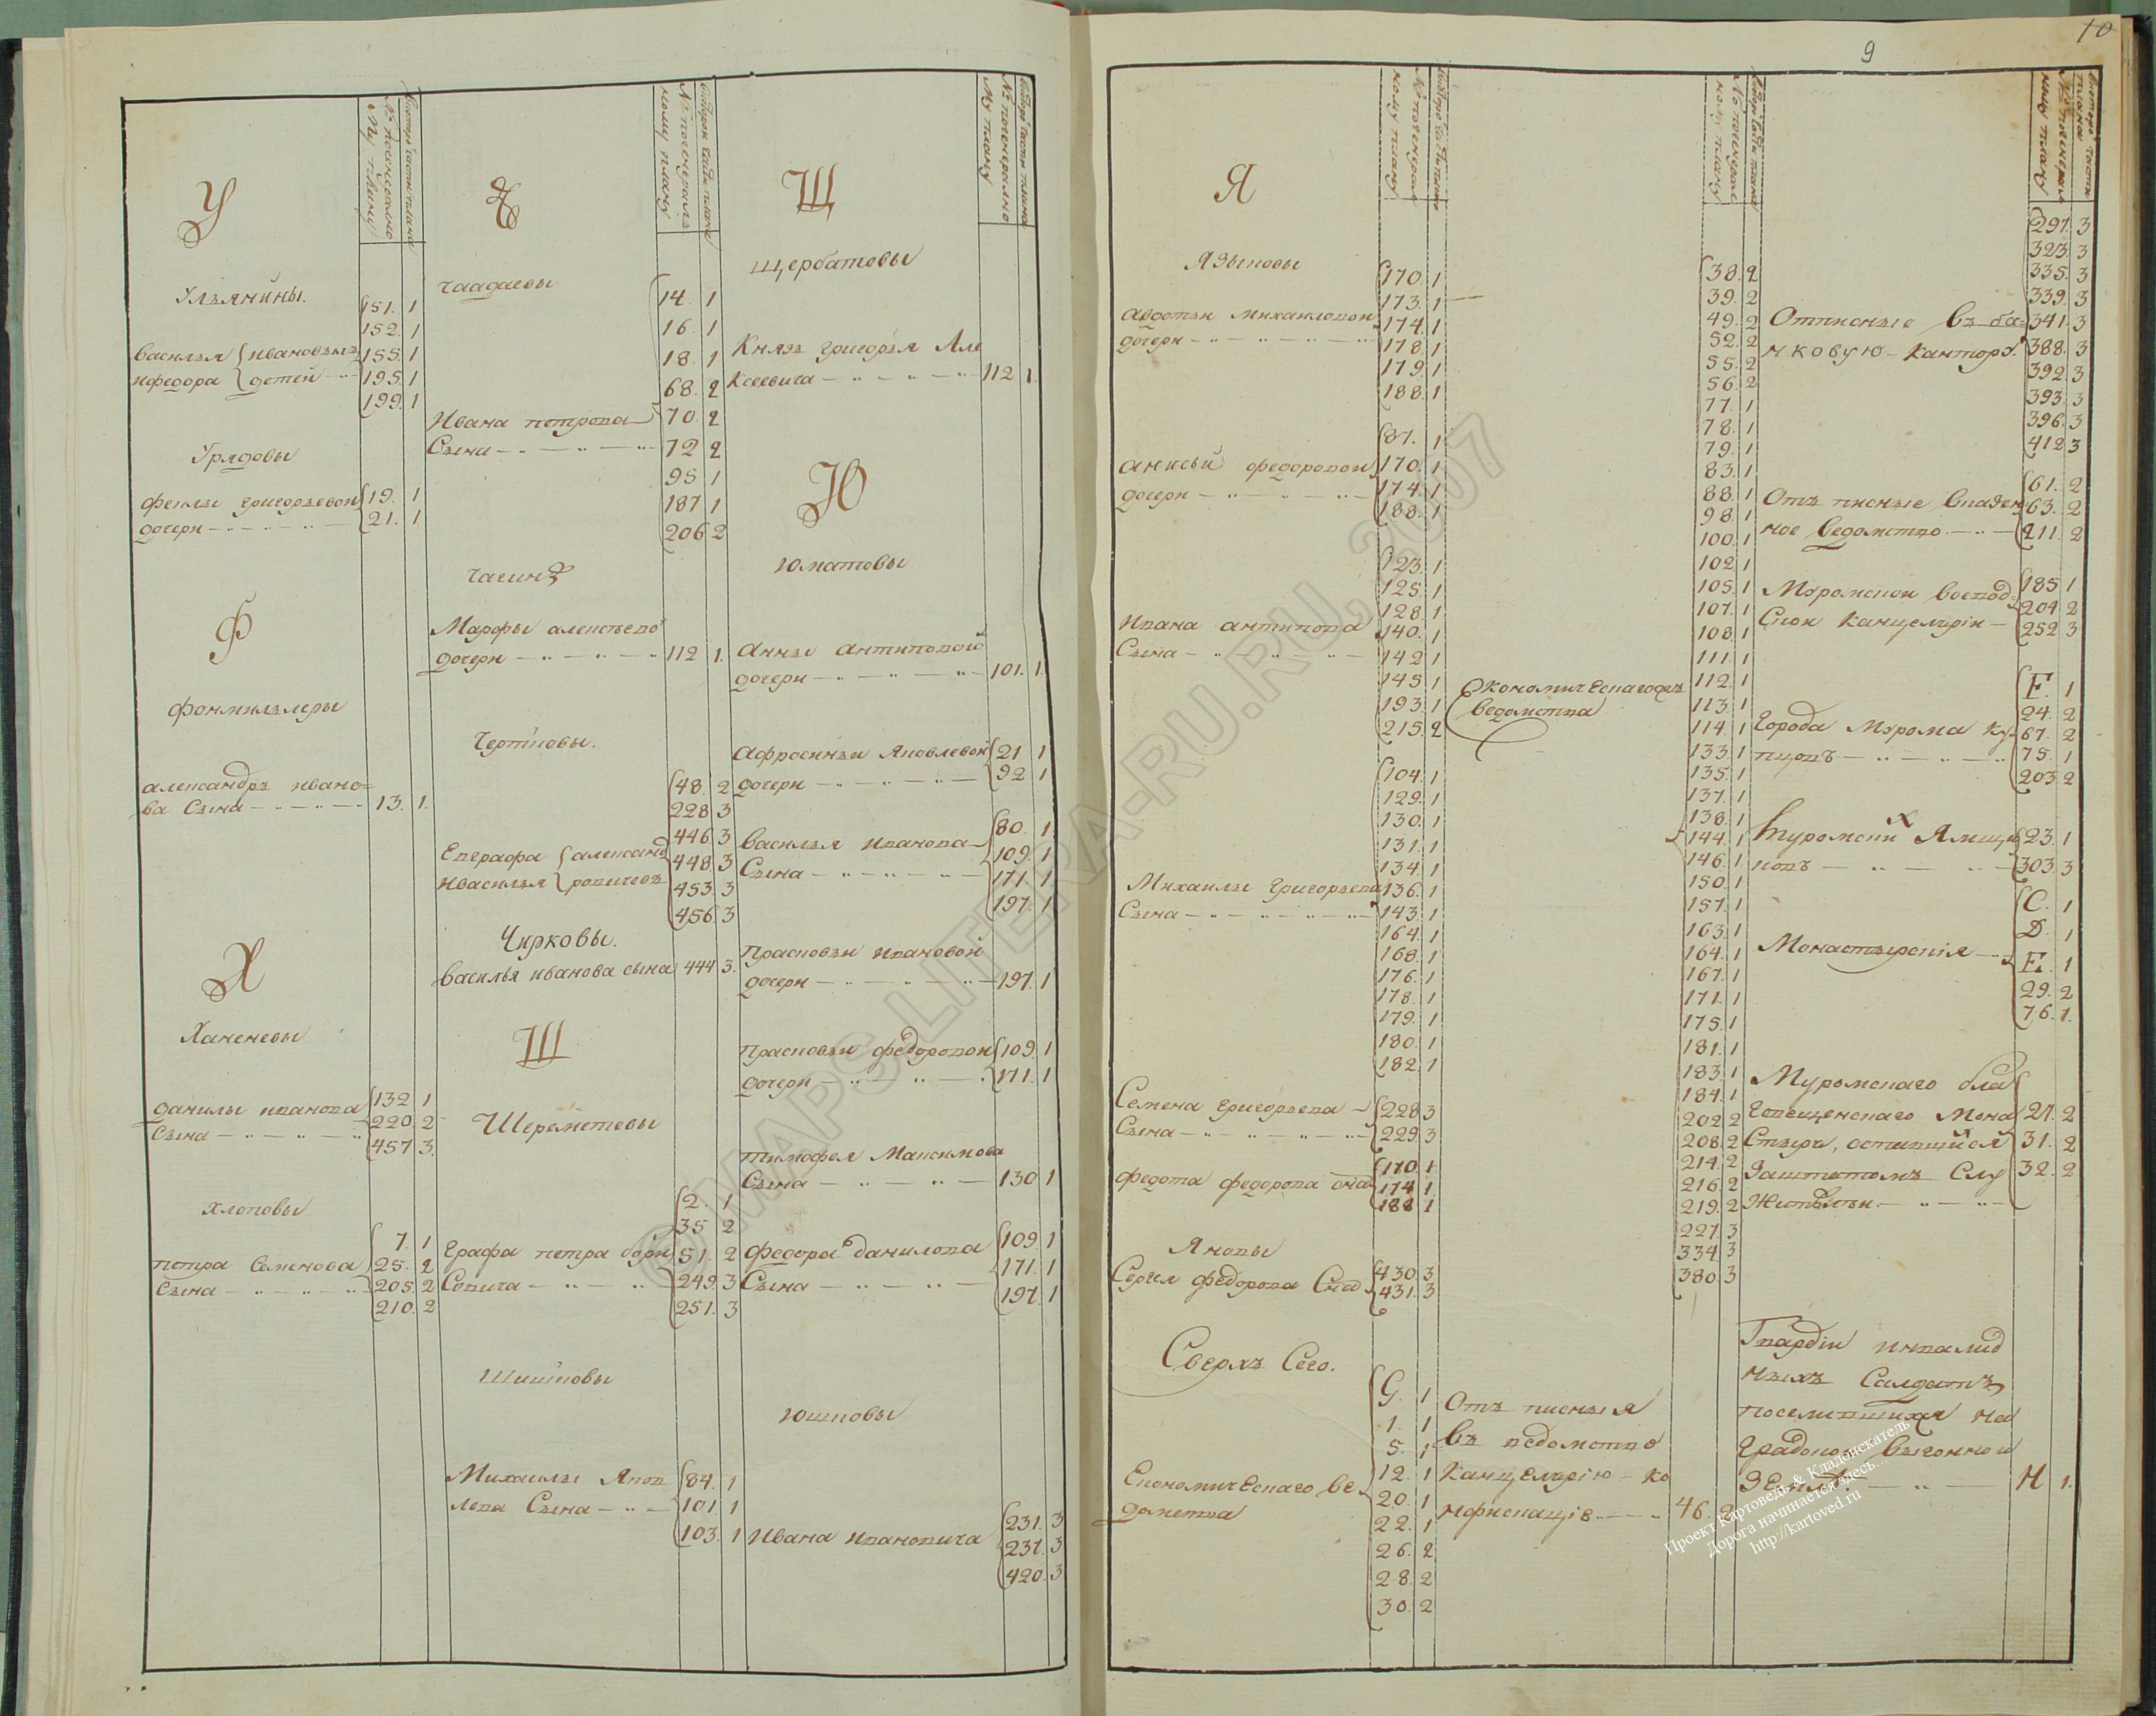 У
Ульянины.
151. 1
152. 1
Василья ивановыхъ 155. 1
ифедора детей 195. 1
199. 1
Урядовы
феклы григорьевои 19. 1
дочери 21. 1
Ф
фонмиллеры
александръ ивано=
ва Сына 13. 1.
Х
Ханеневы
данилы иванова 132 1
Сына 220. 2
457 3.
хлоповы
7. 1
петра Семенова 25. 2
Сына 205. 2
210. 2
Ч
чаадаевы
14. 1
16. 1
18. 1
68. 2
Ивана петрова 70. 2
Сына 72 2
95 1
187 1
206 2
чагин
Марфы алексеево
дочери 112 1.
Чертковы.
48. 2
228 3
446. 3
Евграфа александ 448. 3
ивасилья ровичевъ 453 3
456 3
Чирковы.
василья иванова сына 444 3.
Ш
Шереметевы
2. 1
35 2
Графа петра бори 51. 2
Совича 249. 3
251. 3
Шишковы
Михаилы Яков 84. 1
лева Сына 101. 1
103. 1
Щ
щербатовы
Князь григорья Але
Ксеевича 112 1.
Ю
юматовы
Анны Антиповой
дочери 101. 1.
Афросиньи Яковлевой 21 1
дочери 92 1
80. 1
василья иванова 109. 1
Сына 171. 1
197. 1
Прасковьи ивановой
дочери 197. 1
прасковьи федоровои 109. 1
дочери 171. 1
тимофея Максимова
Сына 130 1
федора данилова 109 1
Сына 171. 1
197. 1
Юшковы
231. 3
Ивана ивановича 237. 3
420. 3
9
10
Я
Языковы
170. 1
173. 1
авдотьи михаиловои 174. 1
дочери 178. 1
179. 1
188. 1
87. 1
анисьи федоровои 170. 1
дочери 174. 1
188. 1
123. 1
125. 1
128. 1
Ивана антипова 140. 1
Сына 142 1
145 1
193. 1
215. 2
104. 1
129. 1
130. 1
131. 1
134. 1
Михаилы григорьева 136. 1
Сына 143. 1
164. 1
168. 1
176. 1
178. 1
179. 1
180. 1
182. 1
Семена григорьева 228 3
Сына 229. 3
170. 1.
федота федорова сна 174 1
188 1
Яновы
Сергея федорова Сна 430. 3
431. 3
Сверхъ Сего.
G. 1
1. 1
5. 1
Економическаго ве= 12. 1
домства 20. 1
22. 1
26. 2
28. 2
30. 2
38. 2
39. 2
49. 2
52. 2
55. 2
56. 2
77. 1
78. 1
79. 1
83. 1
88. 1
98. 1
100. 1
102 1
105. 1
107. 1
108. 1
111. 1
Економическагожъ 112. 1
ведомства 113. 1
114. 1
133. 1
135. 1
137. 1
138. 1
144. 1
146. 1
150. 1
157. 1
163. 1
164. 1
167. 1
171. 1
175. 1
181. 1
183. 1
184. 1
202 2
208. 2
214. 2
216. 2
219. 2
227. 3
334. 3
380. 3
Отъ писныя
въ ведомство
Канцелярию Ко
нфискацие 46. 2
297. 3
323. 3
335. 3
339. 3
Отписные въ ба= 341. 3
нковую Кантору. 388. 3
392 3
393. 3
396. 3
412 3
61. 2
Отъ писные владен 63. 2
ное ведомство 211. 2
Муромскои воевод= 185 1
Скои Канцелярии 204 2
252 3
F. 1
24. 2
города Мурома Ку= 67. 2
пцовъ 75. 1
203. 2
Муромски Х Ямщи 23. 1
ковъ 303. 3
C. 1
D. 1
Монастырския E. 1
29. 2
76. 1.
Муромскаго бла
говещенскаго Мона 27. 2
Стыря, оставшийся 31. 2
Заштатомъ Слу 32. 2
Жительи
Гвардии инвалид
ныхъ Салдатъ
поселившихся на
градской выгонной
земле H 1.
© MAPS.LITERA-RU.RU, 2007
Проект Картоведъ & Кладоискатель
Дорога начинается здесь...
http://kartoved.ru